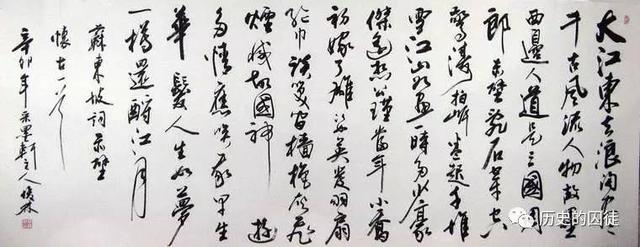 大江東去浪淘盡
千古風流人物故壘
西邊人道是三國周
郎赤壁亂石穿空
驚濤拍岸卷起千堆
雪江山如畫一時多少豪
傑遙想公瑾當年小喬
初嫁了雄姿英發羽扇
綸巾談笑間檣櫓灰飛
煙滅故國神遊
多情應笑我早生
華髮人生如夢
一樽還酹江月
蘇東坡詞赤壁
懷古一首
辛卯年墨軒主人
历史的囚徒